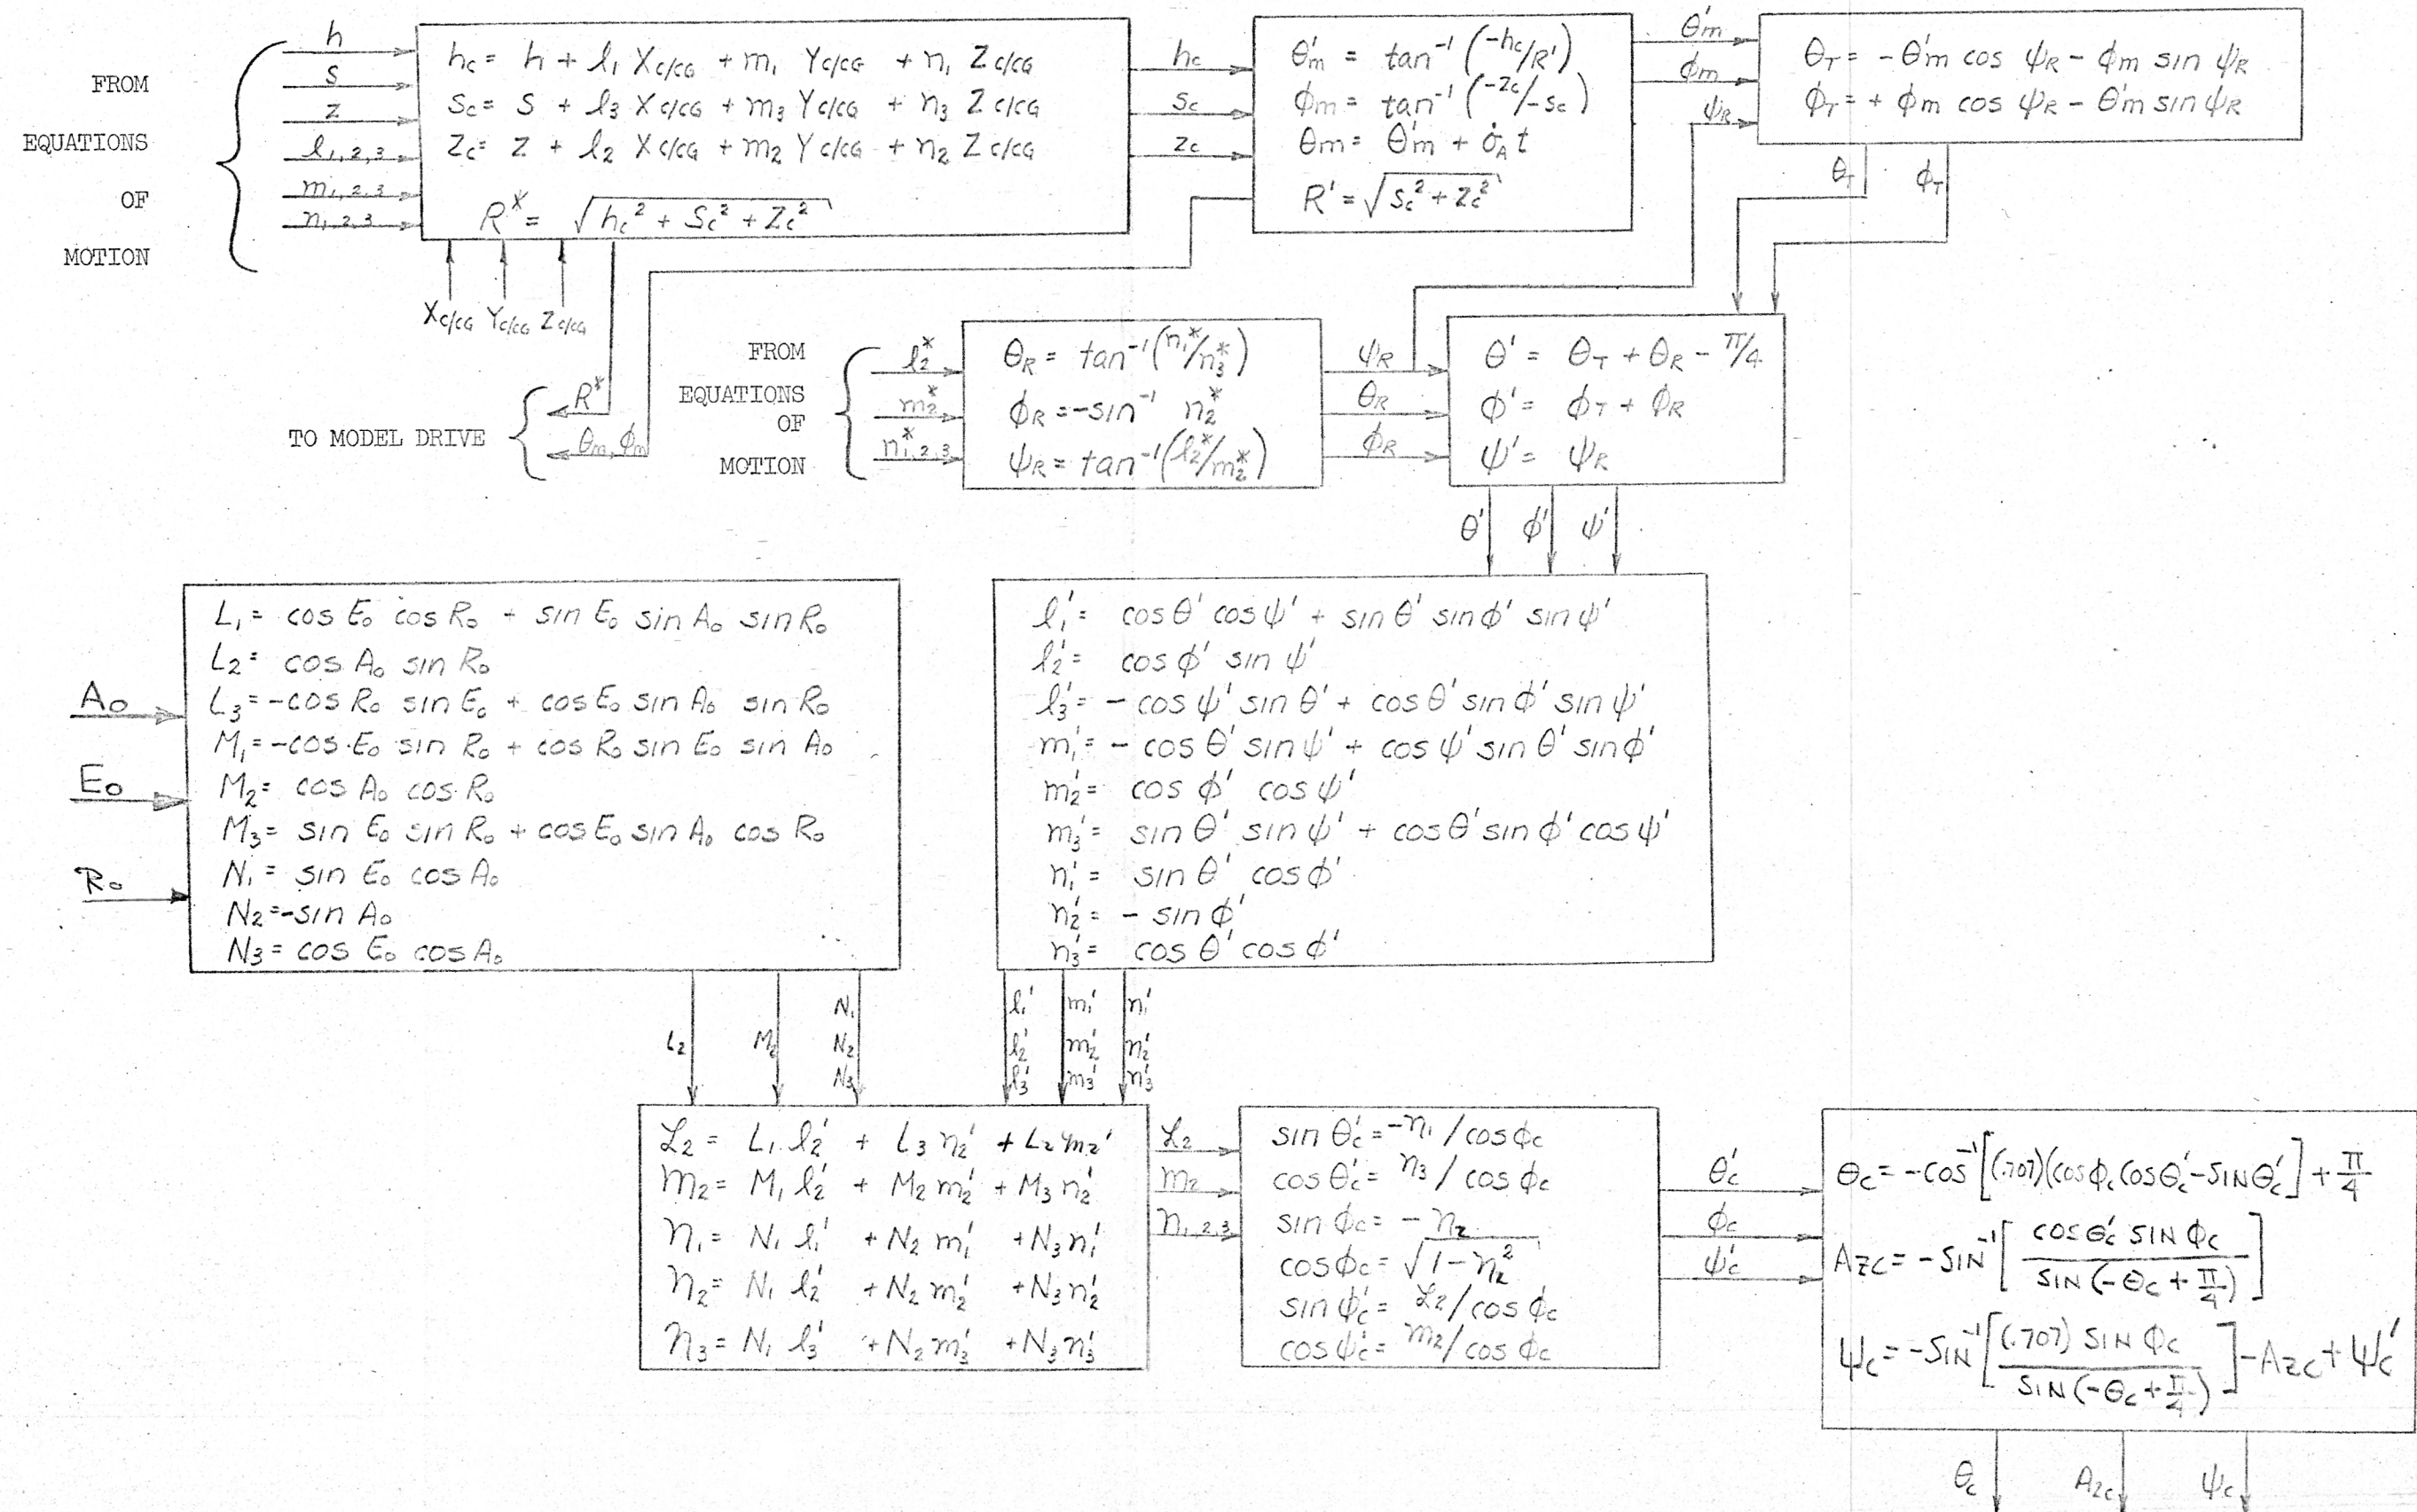 FROM
EQUATIONS
OF
MOTION
h
S
Z
l₁,₂,₃
m₁,₂,₃
n₁,₂,₃
h_c = h + l₁ X_c/cG + m₁ Y_c/cG + n₁ Z_c/cG
S_c = S + l₃ X_c/cG + m₃ Y_c/cG + n₃ Z_c/cG
Z_c = Z + l₂ X_c/cG + m₂ Y_c/cG + n₂ Z_c/cG
R* = √(h_c² + S_c² + Z_c²)
X_c/cG Y_c/cG Z_c/cG
h_c
S_c
Z_c
θ'm = tan⁻¹(-h_c/R')
ϕm = tan⁻¹(-Z_c/-S_c)
θm = θ'm + σ̇_A t
R' = √(S_c² + Z_c²)
θ'm
ϕm
ψ_R
θ_T = -θ'm cos ψ_R - ϕm sin ψ_R
ϕ_T = + ϕm cos ψ_R - θ'm sin ψ_R
θ_T
ϕ_T
R*
θm, ϕm
TO MODEL DRIVE
FROM
EQUATIONS
OF
MOTION
l₂*
m₂*
n*₁,₂,₃
θ_R = tan⁻¹(n₁*/n₃*)
ϕ_R = -sin⁻¹ n₂*
ψ_R = tan⁻¹(l₂*/m₂*)
ψ_R
θ_R
ϕ_R
θ' = θ_T + θ_R - π/4
ϕ' = ϕ_T + ϕ_R
ψ' = ψ_R
θ' ϕ' ψ'
A₀
E₀
R₀
L₁ = cos E₀ cos R₀ + sin E₀ sin A₀ sin R₀
L₂ = cos A₀ sin R₀
L₃ = -cos R₀ sin E₀ + cos E₀ sin A₀ sin R₀
M₁ = -cos E₀ sin R₀ + cos R₀ sin E₀ sin A₀
M₂ = cos A₀ cos R₀
M₃ = sin E₀ sin R₀ + cos E₀ sin A₀ cos R₀
N₁ = sin E₀ cos A₀
N₂ = -sin A₀
N₃ = cos E₀ cos A₀
l₁' = cos θ' cos ψ' + sin θ' sin ϕ' sin ψ'
l₂' = cos ϕ' sin ψ'
l₃' = - cos ψ' sin θ' + cos θ' sin ϕ' sin ψ'
m₁' = - cos θ' sin ψ' + cos ψ' sin θ' sin ϕ'
m₂' = cos ϕ' cos ψ'
m₃' = sin θ' sin ψ' + cos θ' sin ϕ' cos ψ'
n₁' = sin θ' cos ϕ'
n₂' = - sin ϕ'
n₃' = cos θ' cos ϕ'
L₂ M₂ N₁ N₂ N₃
l₁' m₁' n₁'
l₂' m₂' n₂'
l₃' m₃' n₃'
ℒ₂ = L₁ l₂' + L₃ n₂' + L₂ m₂'
m₂ = M₁ l₂' + M₂ m₂' + M₃ n₂'
n₁ = N₁ l₁' + N₂ m₁' + N₃ n₁'
n₂ = N₁ l₂' + N₂ m₂' + N₃ n₂'
n₃ = N₁ l₃' + N₂ m₃' + N₃ n₃'
ℒ₂
m₂
n₁,₂,₃
sin θ'_c = -n₁ / cos ϕ_c
cos θ'_c = n₃ / cos ϕ_c
sin ϕ_c = - n₂
cos ϕ_c = √(1 - n₂²)
sin ψ'_c = ℒ₂ / cos ϕ_c
cos ψ'_c = m₂ / cos ϕ_c
θ'_c
ϕ_c
ψ'_c
θ_c = -COS⁻¹[(.707)(COS ϕ_c COS θ'_c - SIN θ'_c] + π/4
A_ZC = -SIN⁻¹[COS θ'_c SIN ϕ_c / SIN (-θ_c + π/4)]
ψ_c = -SIN⁻¹[(.707) SIN ϕ_c / SIN (-θ_c + π/4)] - A_ZC + ψ_c'
θ_c A_ZC ψ_c